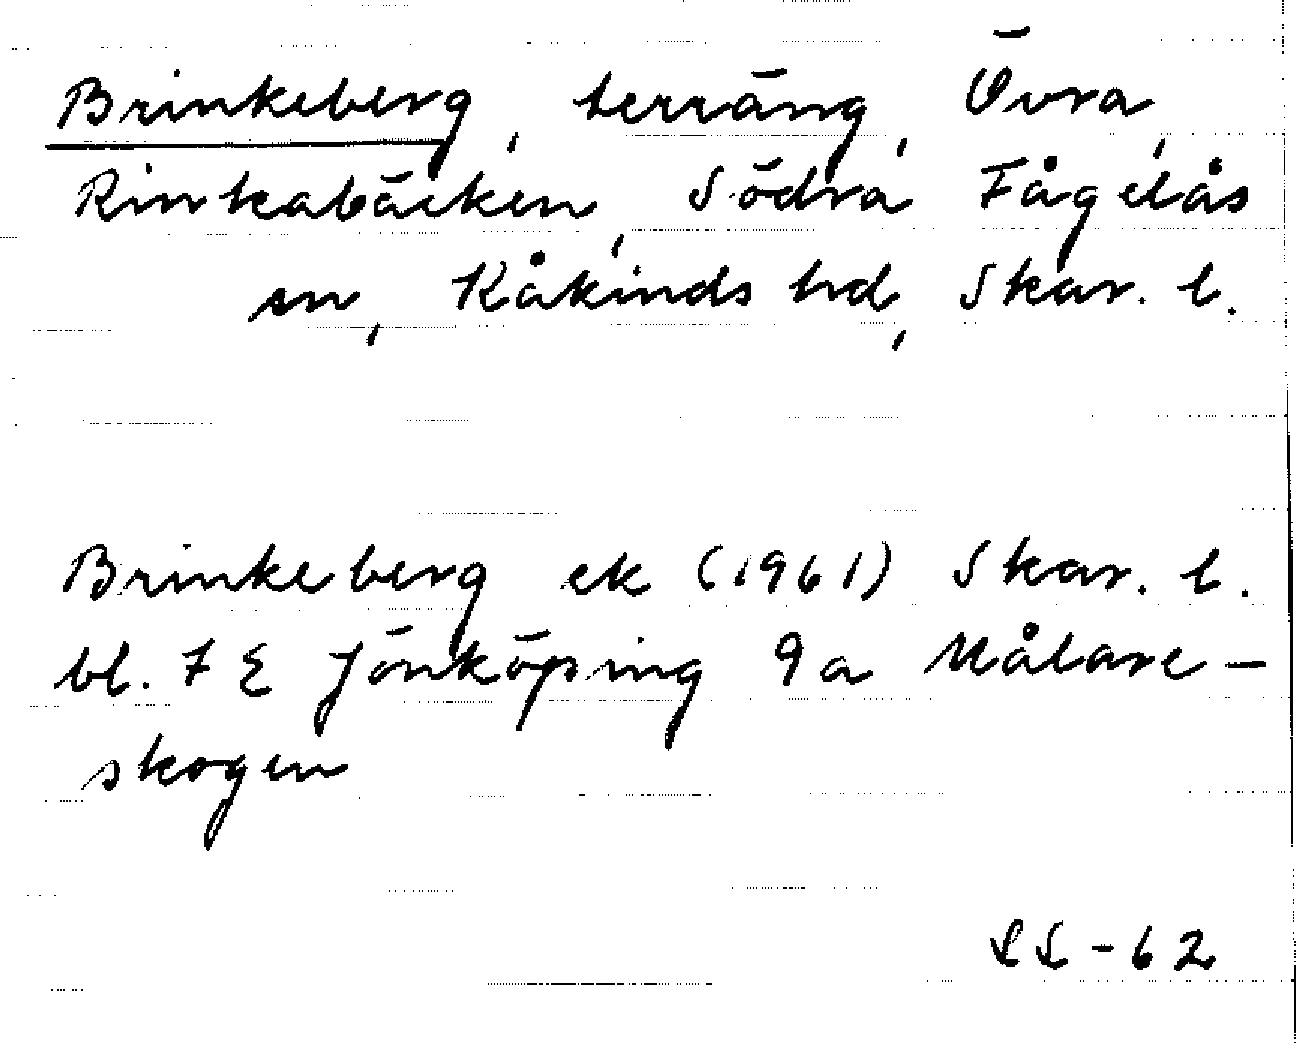 Brinkeberg, terräng, Övra,
Rinkabäcken, Södra Fågelås
sn, Kåkinds hd, Skar. l.
Brinkeberg ek (1961) Skar. l.
bl. 7 E Jönköping 9a Målare-
skogen
-62